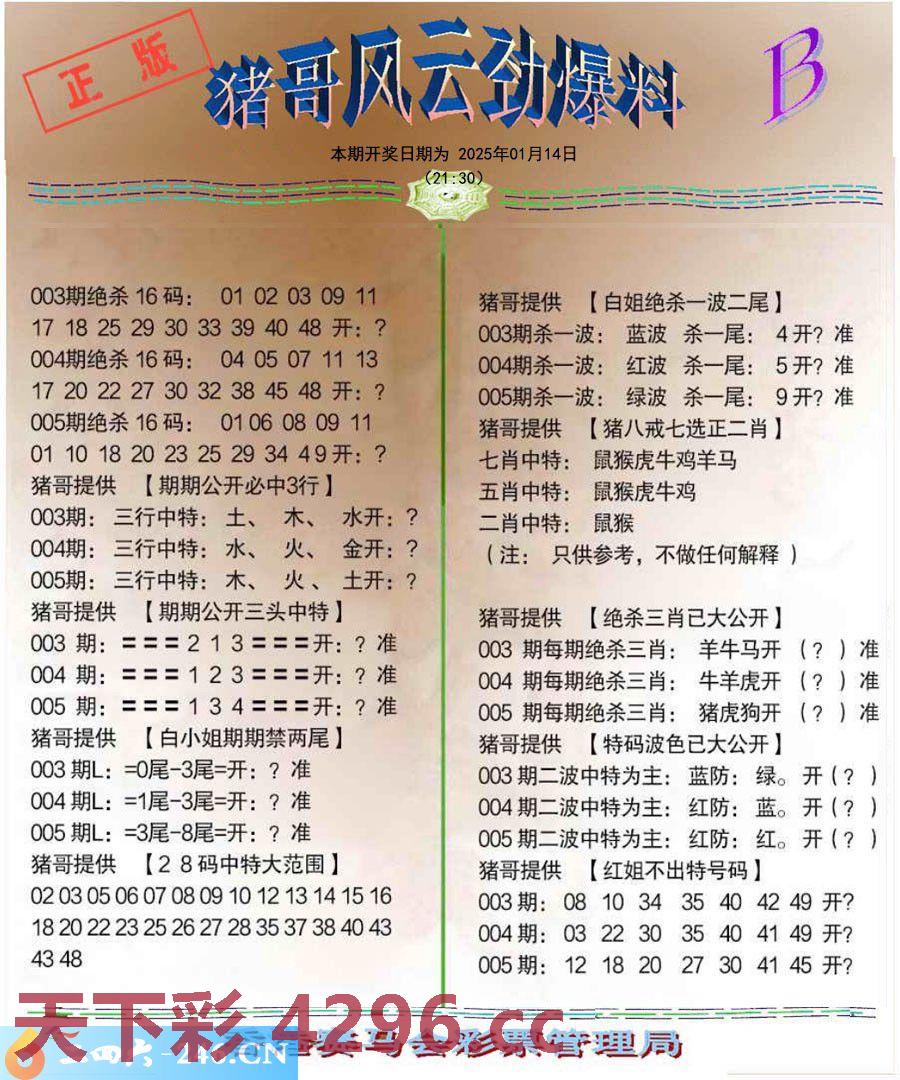 正版
猪哥风云劲爆料
B
本期开奖日期为 2025年01月14日
(21:30)
003期绝杀 16 码： 01 02 03 09 11
17 18 25 29 30 33 39 40 48 开：?
004期绝杀 16 码： 04 05 07 11 13
17 20 22 27 30 32 38 45 48 开：?
005期绝杀 16 码： 01 06 08 09 11
01 10 18 20 23 25 29 34 4 9 开：?
猪哥提供 【期期公开必中3行】
003期：三行中特：土、 木、 水开：?
004期：三行中特：水、 火、 金开：?
005期：三行中特：木、 火、 土开：?
猪哥提供 【期期公开三头中特】
003 期：＝＝＝2 1 3＝＝＝开：? 准
004 期：＝＝＝1 2 3＝＝＝开：? 准
005 期：＝＝＝1 3 4＝＝＝开：? 准
猪哥提供 【白小姐期期禁两尾】
003 期L：=0尾-3尾=开：? 准
004 期L：=1尾-3尾=开：? 准
005 期L：=3尾-8尾=开：? 准
猪哥提供 【２８码中特大范围】
02 03 05 06 07 08 09 10 12 13 14 15 16
18 20 22 23 25 26 27 28 35 37 38 40 43
43 48
猪哥提供 【白姐绝杀一波二尾】
003期杀一波： 蓝波 杀一尾： 4 开? 准
004期杀一波： 红波 杀一尾： 5 开? 准
005期杀一波： 绿波 杀一尾： 9 开? 准
猪哥提供 【猪八戒七选正二肖】
七肖中特： 鼠猴虎牛鸡羊马
五肖中特： 鼠猴虎牛鸡
二肖中特： 鼠猴
（注： 只供参考，不做任何解释）
猪哥提供 【绝杀三肖已大公开】
003 期每期绝杀三肖： 羊牛马开 （?）准
004 期每期绝杀三肖： 牛羊虎开 （?）准
005 期每期绝杀三肖： 猪虎狗开 （?）准
猪哥提供 【特码波色已大公开】
003 期二波中特为主：蓝防：绿。开（?）
004 期二波中特为主：红防：蓝。开（?）
005 期二波中特为主：红防：红。开（?）
猪哥提供 【红姐不出特号码】
003 期： 08 10 34 35 40 42 49 开?
004 期： 03 22 30 35 40 41 49 开?
005 期： 12 18 20 27 30 41 45 开?
天下彩 4296.cc
二四六-246.CN
马会彩票管理局